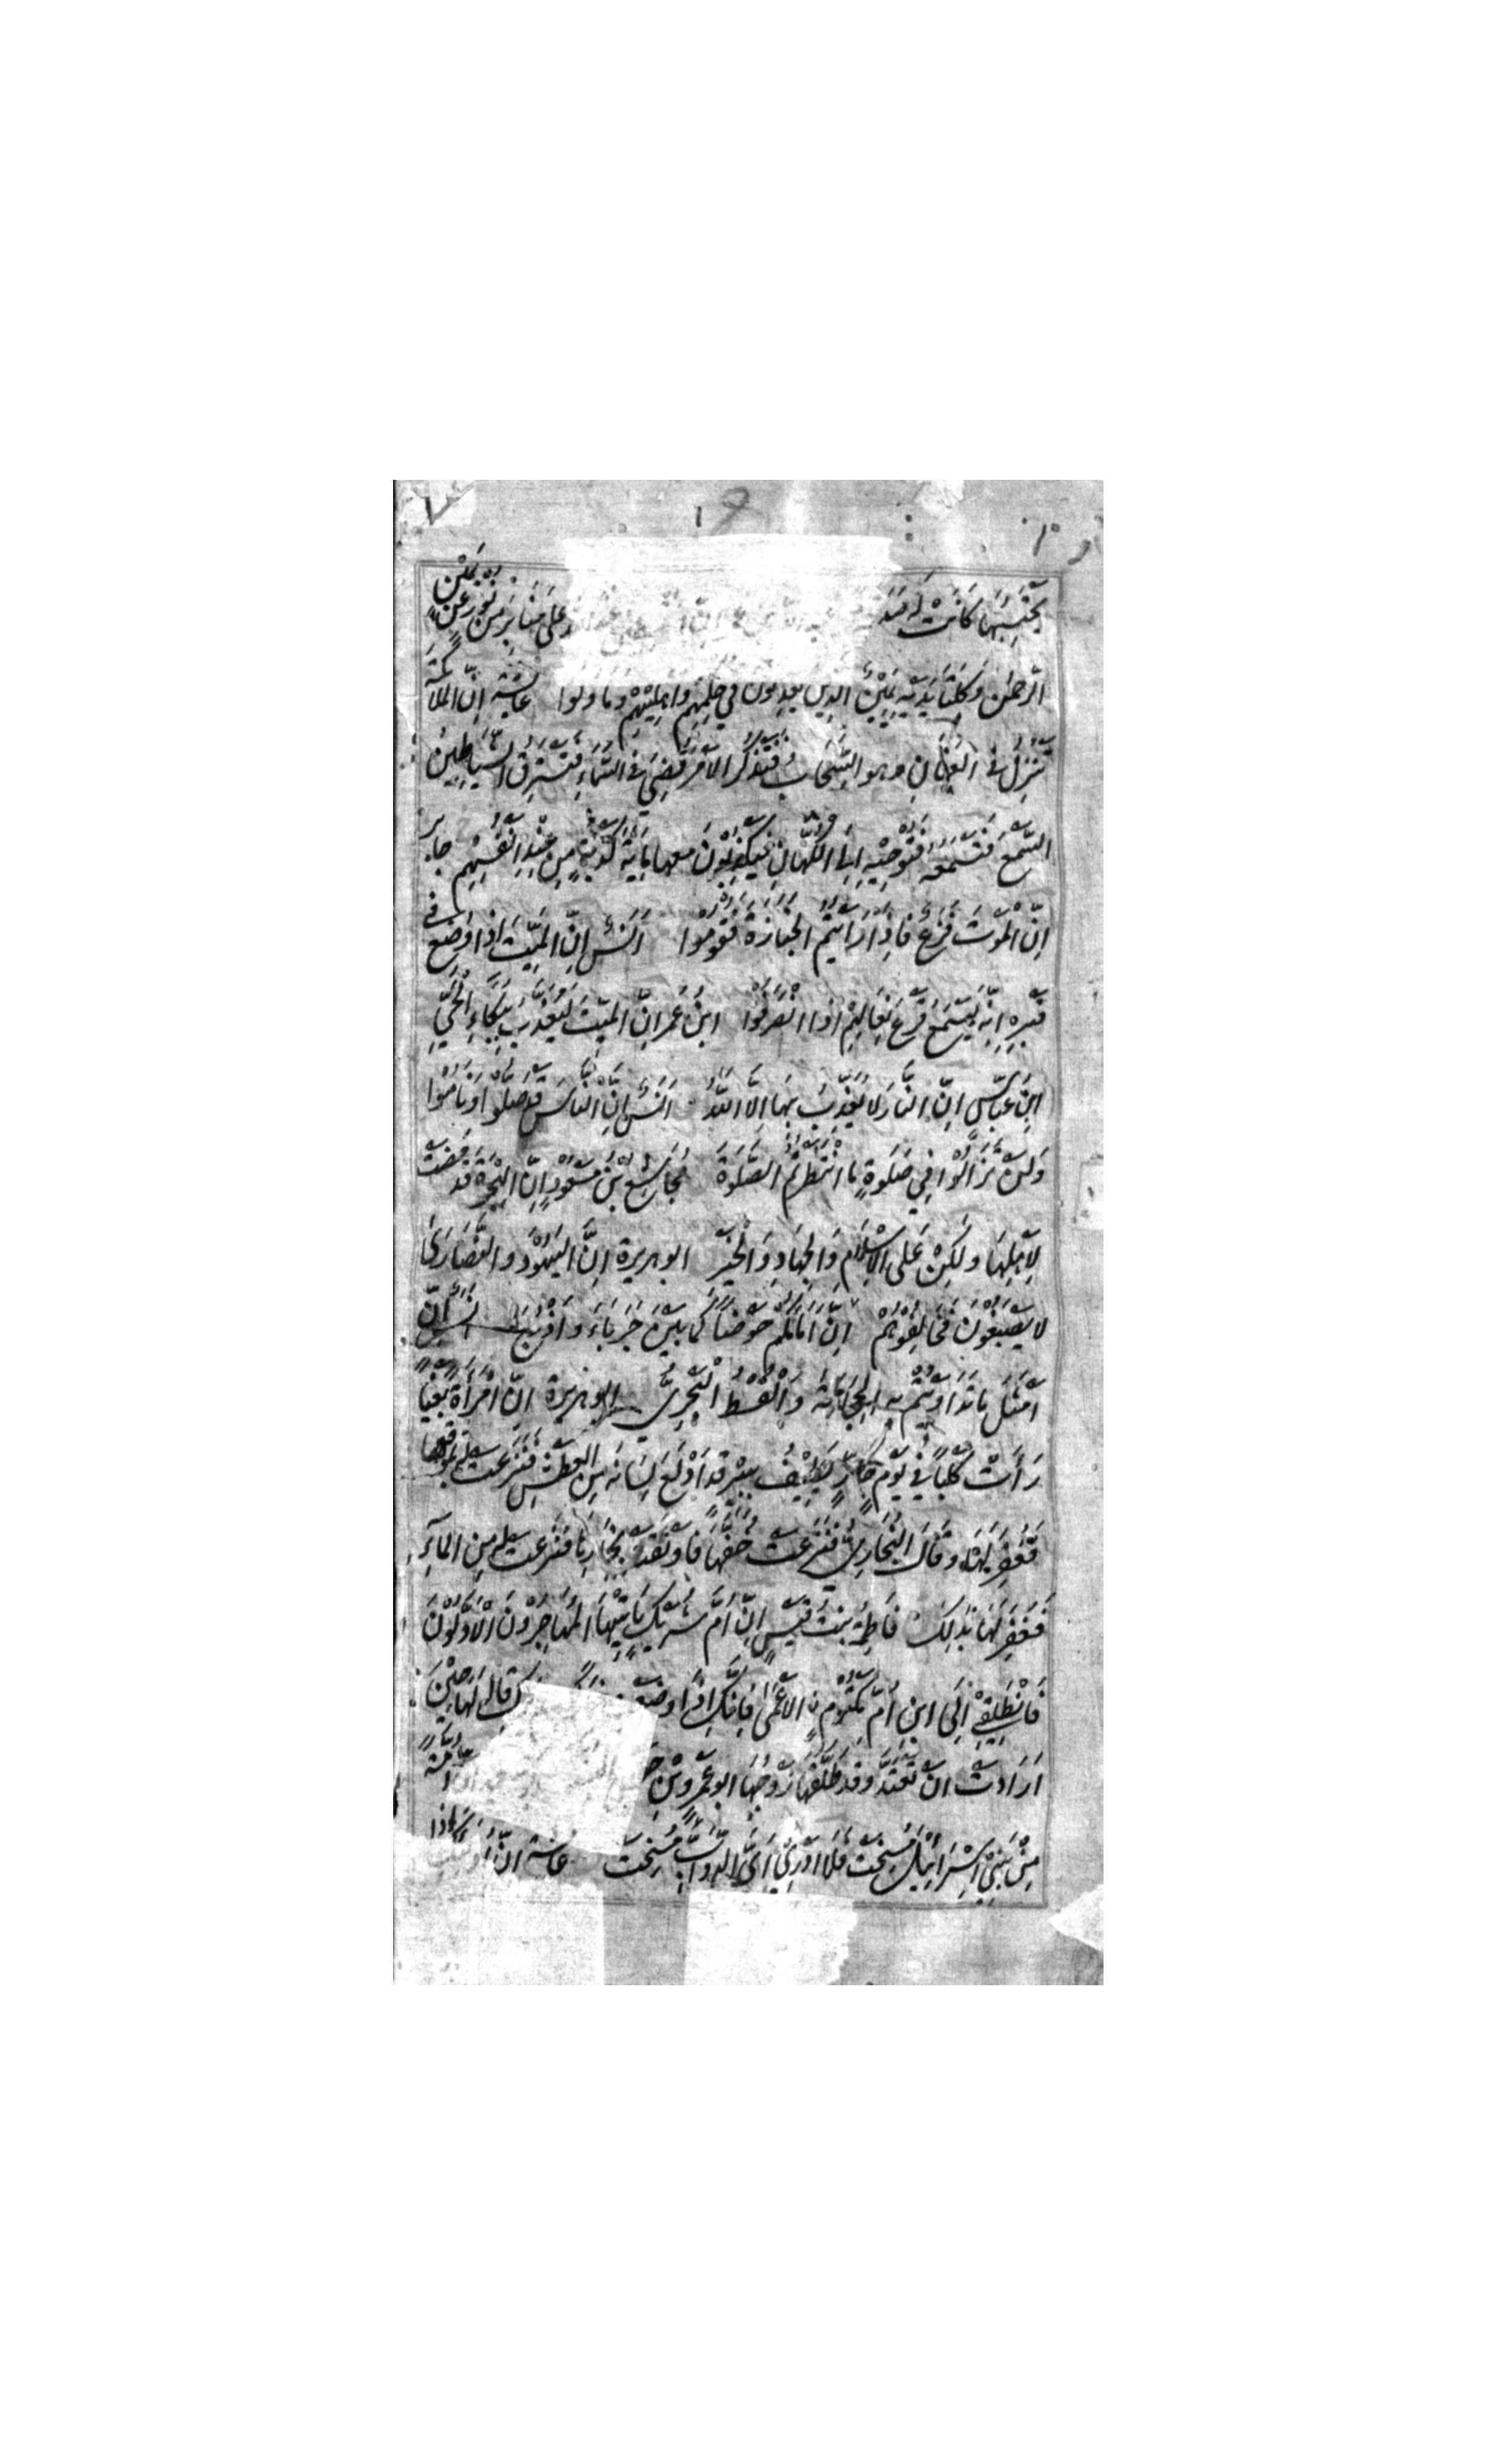 يُحْثِيهَا كَانَتْ لَهُ عَلَى مَنَابِرَ مِنْ نُوْرٍ عَنْ يَمِيْنِ
الرَّحْمٰنِ وَكِلْتَا يَدَيْهِ يَمِيْنٌ الَّذِيْنَ يَعْدِلُوْنَ فِيْ حُكْمِهِمْ وَاَهْلِيْهِمْ وَمَا وَلُوْا عَائِشَة اِنَّ الْمَلَائِكَةَ
تَنْزِلُ فِي الْعَنَانِ وهو السَّحَابُ فَتَذْكُرُ الْاَمْرَ قُضِيَ فِي السَّمَاءِ فَتَسْتَرِقُ الشَّيَاطِيْنُ
السَّمْعَ فَتَسْمَعُهُ فَتُوْحِيْهِ اِلَى الْكُهَّانِ فَيَكْذِبُوْنَ معها مِائَةَ كَذْبَةٍ مِنْ عِنْدِ اَنْفُسِهِمْ جابر
اِنَّ الْمَوْتَ فَزَعٌ فَاِذَا رَاَيْتُمُ الْجَنَازَةَ فَقُوْمُوْا اَنَسٌ اِنَّ الْمَيِّتَ اِذَا وُضِعَ فِي
قَبْرِهِ اِنَّهُ لَيَسْمَعُ قَرْعَ نِعَالِهِمْ اِذَا انْصَرَفُوْا ابْنُ عُمَرَ اِنَّ الْمَيِّتَ لَيُعَذَّبُ بِبُكَاءِ الْحَيِّ
ابْنِ عَبَّاسٍ اِنَّ النَّارَ لَا يُعَذِّبُ بِهَا اِلَّا اللّٰهُ اَنَسٌ اِنَّ النَّاسَ قَدْ صَلَّوْا وَنَامُوْا
وَلَنْ تَزَالُوْا فِيْ صَلَوةٍ مَا انْتَظَرْتُمُ الصَّلَوةَ مُجَاشِعُ بْنُ مَسْعُوْدٍ اِنَّ الْهِجْرَةَ قَدْ مَضَتْ
لِاَهْلِهَا وَلٰكِنْ عَلَى الْاِسْلَامِ وَالْجِهَادِ وَالْخَيْرِ ابو هريرة اِنَّ الْيَهُوْدَ وَالنَّصَارٰى
لَا يَصْبُغُوْنَ فَخَالِفُوْهُمْ اِنَّ اَمَامَكُمْ حَوْضًا كَمَا بَيْنَ جَرْبَاءَ وَاَذْرُحَ اَنَسٌ اِنَّ
اَمْثَلَ مَا تَدَاوَيْتُمْ بِهِ الْحِجَامَةُ وَالْقُسْطُ الْبَحْرِيُّ ابو هريرة اِنَّ امْرَاَةً بَغِيًّا
رَأَتْ كَلْبًا فِيْ يَوْمٍ حَارٍّ يُطِيْفُ بِبِئْرٍ قَدْ اَدْلَعَ لِسَانَهُ مِنَ الْعَطَشِ فَنَزَعَتْ لَهُ بِمُوْقِهَا
فَغُفِرَ لَهَا وَقَالَ الْبُخَارِيُّ فَنَزَعَتْ خُفَّهَا فَاَوْثَقَتْهُ بِخِمَارِهَا فَنَزَعَتْ لَهُ مِنَ الْمَآءِ
فَغُفِرَ لَهَا بِذٰلِكَ فَاطِمَةُ بِنْتُ قَيْسٍ اِنَّ اُمَّ شَرِيْكٍ يَاْتِيْهَا الْمُهَاجِرُوْنَ الْاَوَّلُوْنَ
فَانْطَلِقِيْ اِلَى ابْنِ اُمِّ مَكْتُوْمٍ الْاَعْمٰى فَاِنَّكِ اِذَا وَضَعْتِ قَالَهُ لَهَا حِيْنَ
اَرَادَتْ اَنْ تَعْتَدَّ وَقَدْ طَلَّقَهَا زَوْجُهَا اَبُوْ عَمْرِو بْنِ اُمَّةً
مِنْ بَنِيْ اِسْرَائِيْلَ مُسِخَتْ فَلَا اَدْرِيْ اَيَّ الدَّوَابِّ مُسِخَتْ عائشة اِنَّ